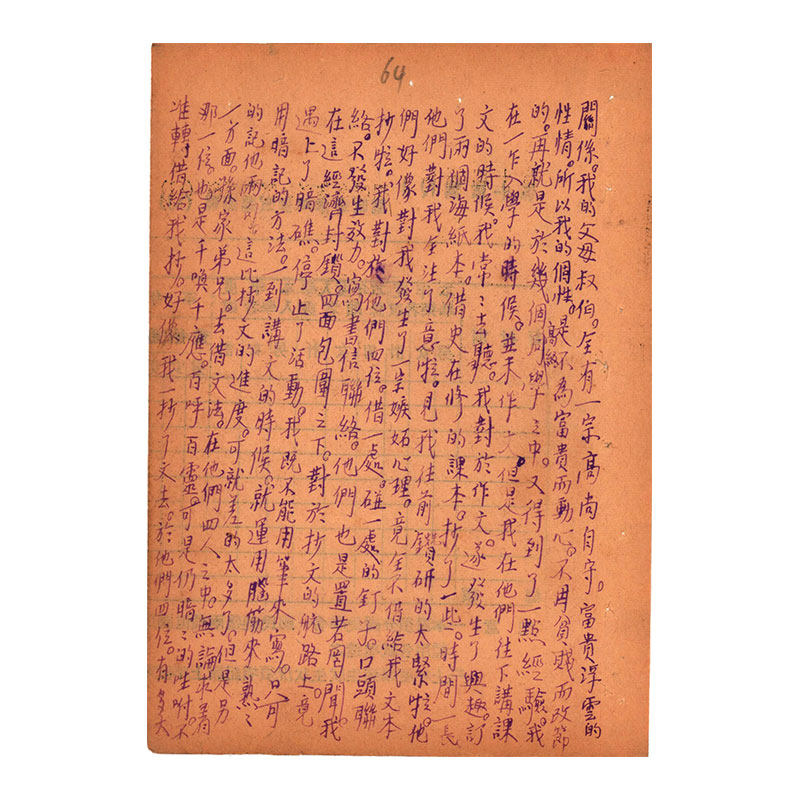 64
關係。我的父母叔伯。全有一宗高尚自守。富貴浮雲的
性情。所以我的個性。是不為富貴而動心。不因貧賤而改節
的。再就是於幾個同學之中。又得到了一點經驗。我
在一乍入學的時候。並未作文。但是我在他們往下講課
文的時候。我常々去聽。我對於作文。遂發生了興趣。訂
了兩個海紙本。借史在修的課本。抄了一些。時間一長
他們對我全注了意啦。見我往前鑽研的太緊啦。他
們好像對我發生了宗嫉妬心理。竟全不借給我文本
抄啦。我對於他們四位。借一處。碰一處的釘子。口頭聯
絡。不發生效力。寫書信聯絡。他們也是置若罔聞。我
在這經濟封鎖。四面包圍之下。對於抄文的航路上。竟
遇上了暗礁。停止了活動。我既不能用筆來寫。只可
用暗記的方法。一到講文的時候。就運用腦筋來熟々
的記他兩 這比抄文的進度。可就差的太多了。但是另
一方面。孫家弟兄。去借文法。在他們四人之中。無論求着
那一位。也是千喚千應。百呼百 可是仍暗々的 咐。不
准轉借給我抄。好像我一抄了文去。於他們四位。有多大